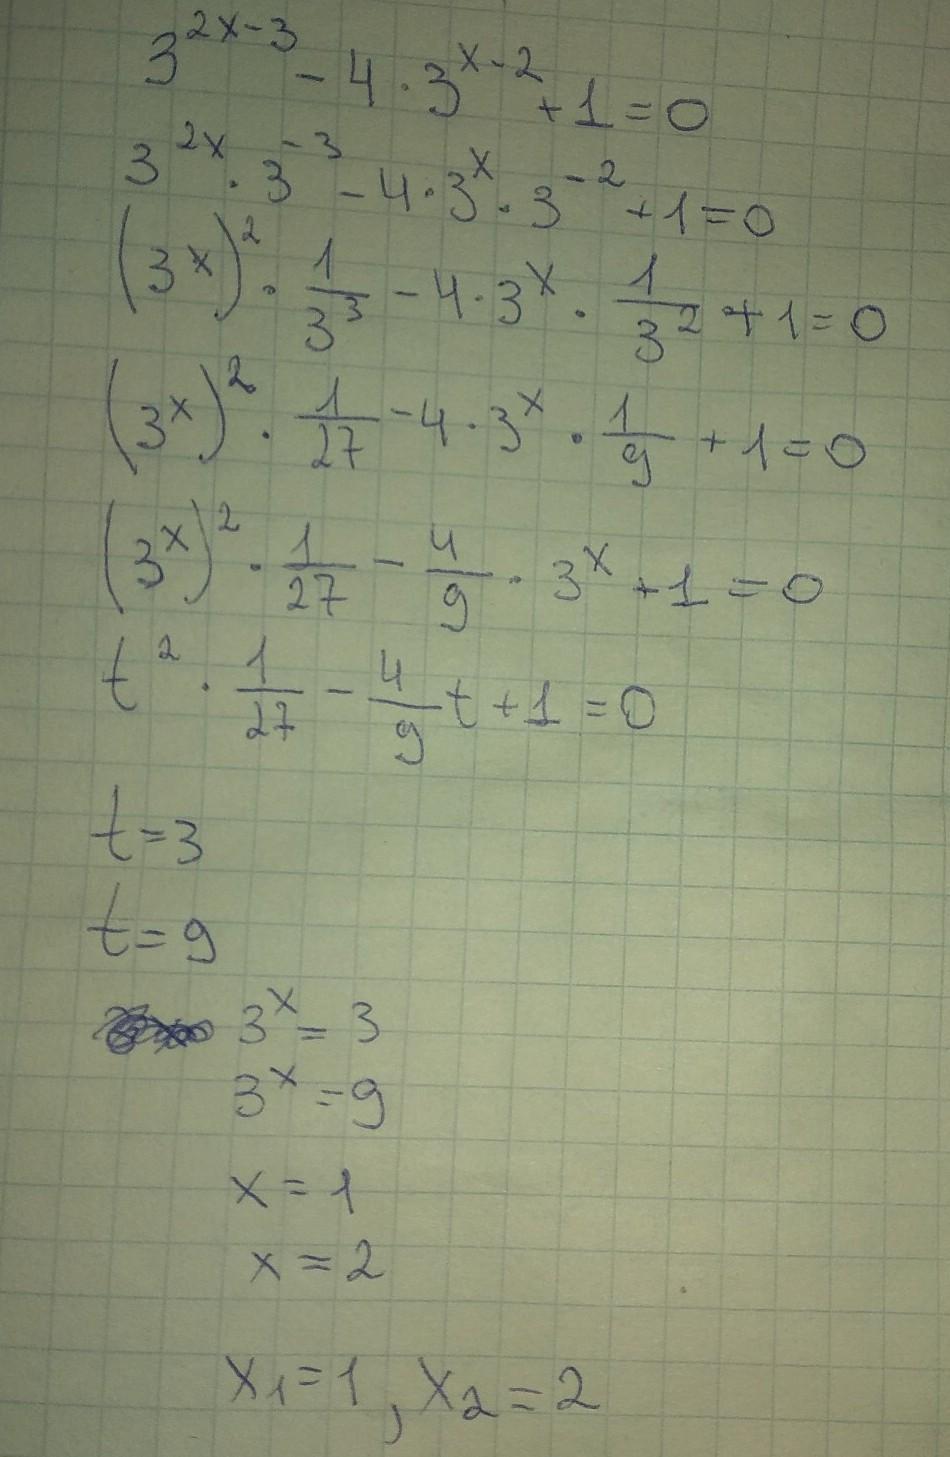 3^{2x-3} - 4 · 3^{x-2} + 1 = 0
3^{2x} · 3^{-3} - 4 · 3^x · 3^{-2} + 1 = 0
(3^x)^2 · \frac{1}{3^3} - 4 · 3^x · \frac{1}{3^2} + 1 = 0
(3^x)^2 · \frac{1}{27} - 4 · 3^x · \frac{1}{9} + 1 = 0
(3^x)^2 · \frac{1}{27} - \frac{4}{9} · 3^x + 1 = 0
t^2 · \frac{1}{27} - \frac{4}{9} t + 1 = 0
t = 3
t = 9
3^x = 3
3^x = 9
x = 1
x = 2
x_1 = 1, x_2 = 2